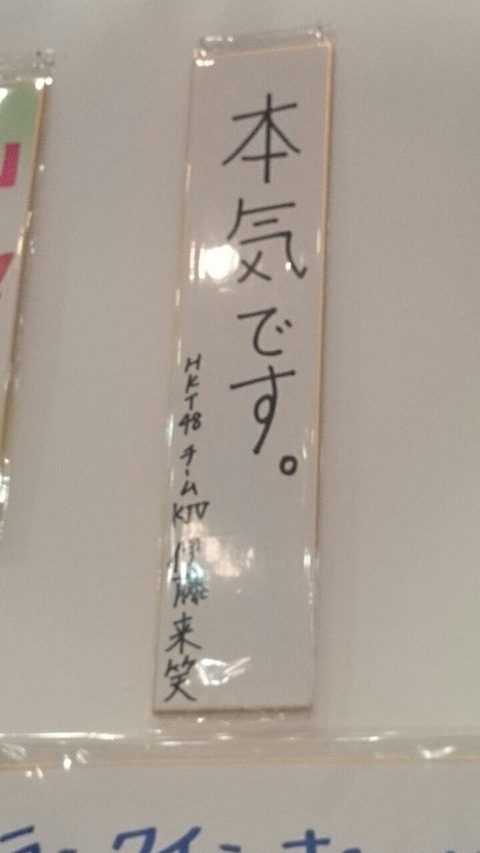 本気です。
HKT48 チームKⅣ 伊藤来笑